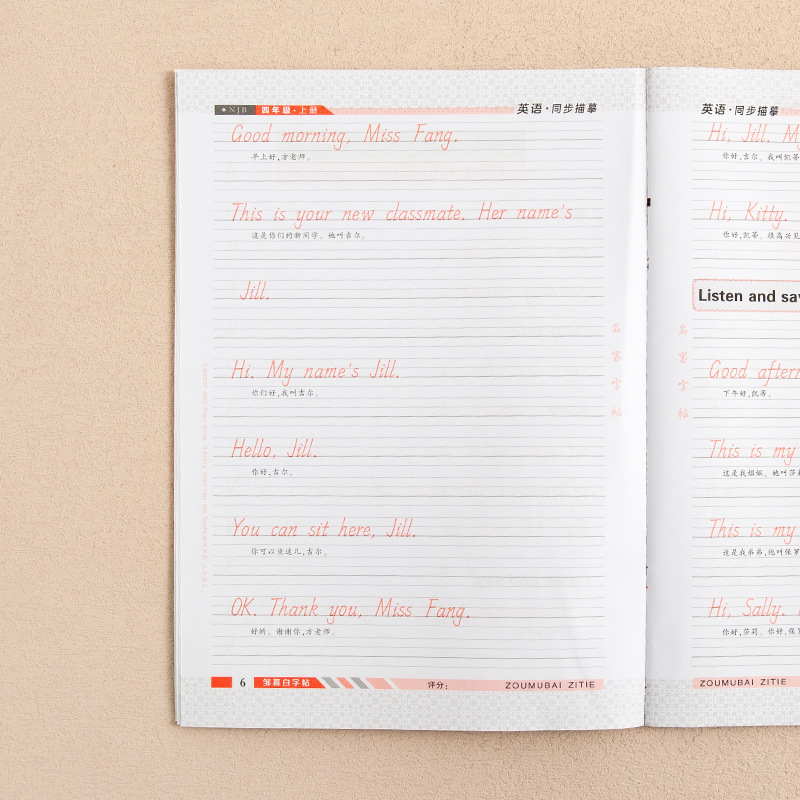 NJB 四年级·上册 英语·同步描摹
Good morning, Miss Fang.
早上好,方老师。
This is your new classmate. Her name's
这是你们的新同学。她叫吉尔。
Jill.
Hi. My name's Jill.
你们好,我叫吉尔。
Hello, Jill.
你好,吉尔。
You can sit here, Jill.
你可以坐这儿,吉尔。
OK. Thank you, Miss Fang.
好的。谢谢你,方老师。
名家字帖
6 邹慕白字帖 评分: ZOUMUBAI ZITIE
英语·同步描摹
Hi, Jill.
你好,吉尔。我叫凯蒂
Hi, Kitty.
你好,凯蒂。很高兴见
Listen and say
名家字帖
Good
下午好,凯蒂。
This is my
这是我姐姐。她叫莎莉
This is my
这是我弟弟,他叫保罗
Hi, Sally.
你好,莎莉。你好,保罗
ZOUMUBAI ZITIE